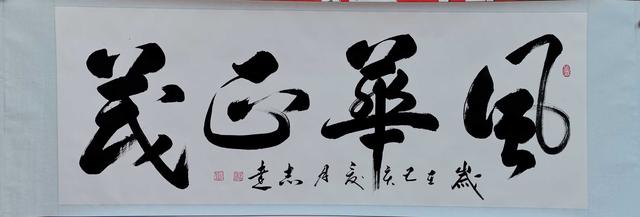 風華正茂
歲在己亥夏月志